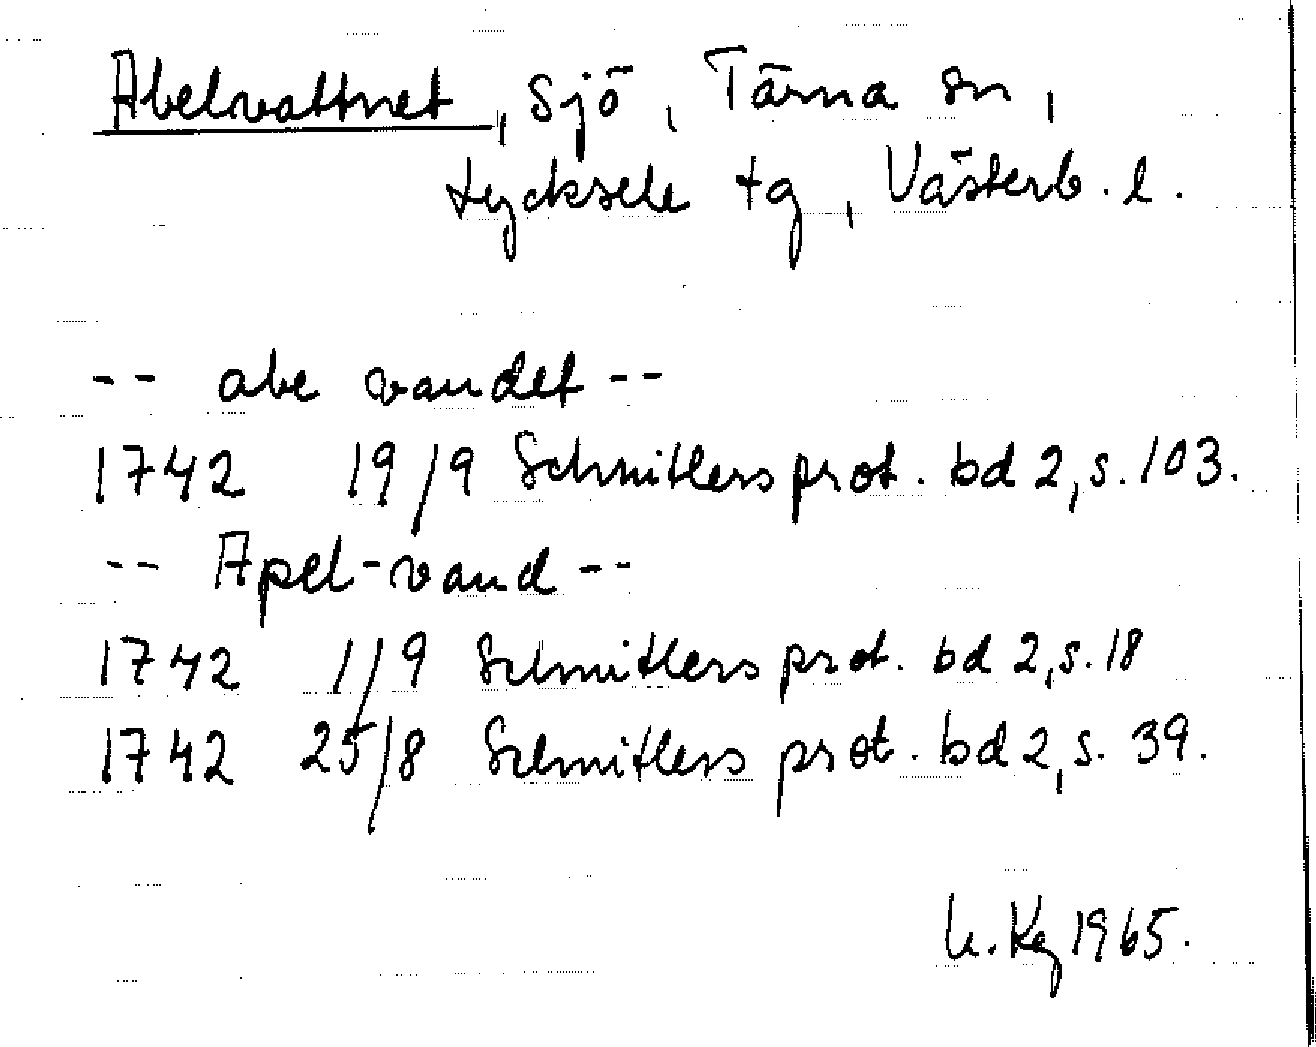 Abelvattnet, sjö, Tärna sn,
Lycksele tg, Västerb. l.
-- abe vandet --
1742 19/9 Schnitlers prot. bd 2, s. 103.
-- Apel-vand --
1742 1/9 Schnitlers prot. bd 2, s. 18
1742 25/8 Schnitlers prot. bd 2, s. 39.
1965.